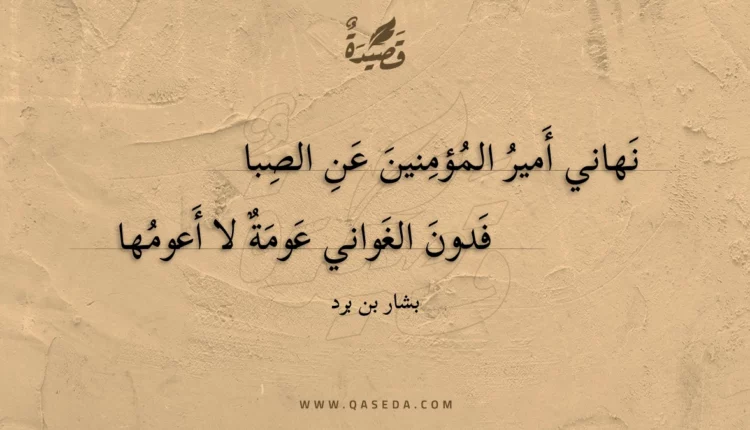 قَصِيْدَةٌ
نَهاني أَميرُ المُؤمِنينَ عَنِ الصِبا
فَدونَ الغَواني عَومَةٌ لا أَعومُها
بشار بن برد
WWW.QASEDA.COM